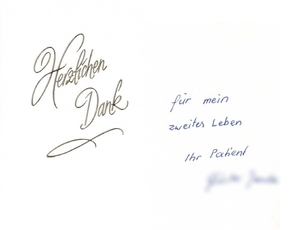 Herzlichen
Dank
für mein
zweites Leben
Ihr Patient